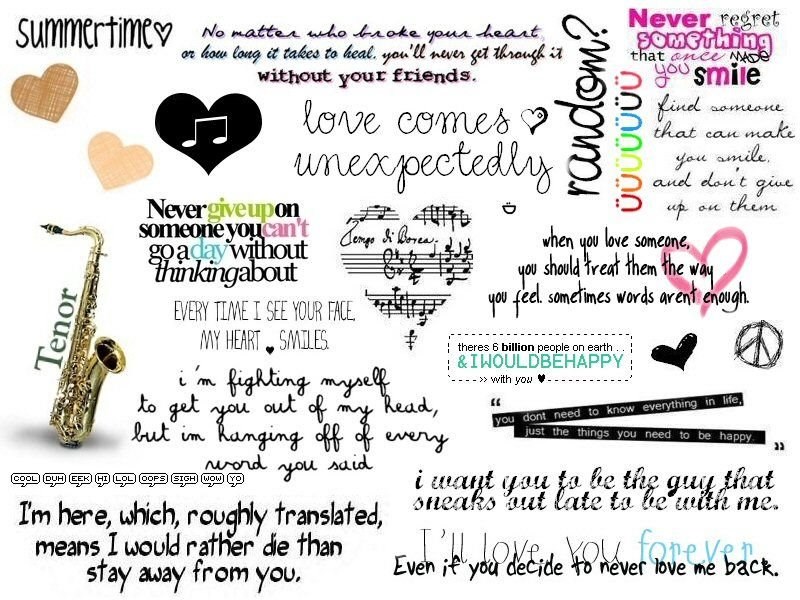 summertime
No matter who broke your heart,
or how long it takes to heal. you'll never get through it
without your friends.
random?
üüüüüüü
Never regret
something
that once MADE
you smile
find someone
that can make
you smile.
and don't give
up on them
love comes
unexpectedly
Never give up on
someone you can't
go a day without
thinking about
Tempo di Borea.
when you love someone,
you should treat them the way
you feel. sometimes words arent enough.
Tenor
EVERY TIME I SEE YOUR FACE,
MY HEART SMILES.
theres 6 billion people on earth ...
&IWOULDBEHAPPY
›› with you ♥
i'm fighting myself
to get you out of my head,
but im hanging off of every
word you said
“
you dont need to know everything in life,
just the things you need to be happy.
”
COOL DUH EEK HI LOL OOPS SIGH WOW YO
i want you to be the guy that
sneaks out late to be with me.
I'm here, which, roughly translated,
means I would rather die than
stay away from you.
I'll love you forever
Even if you decide to never love me back.